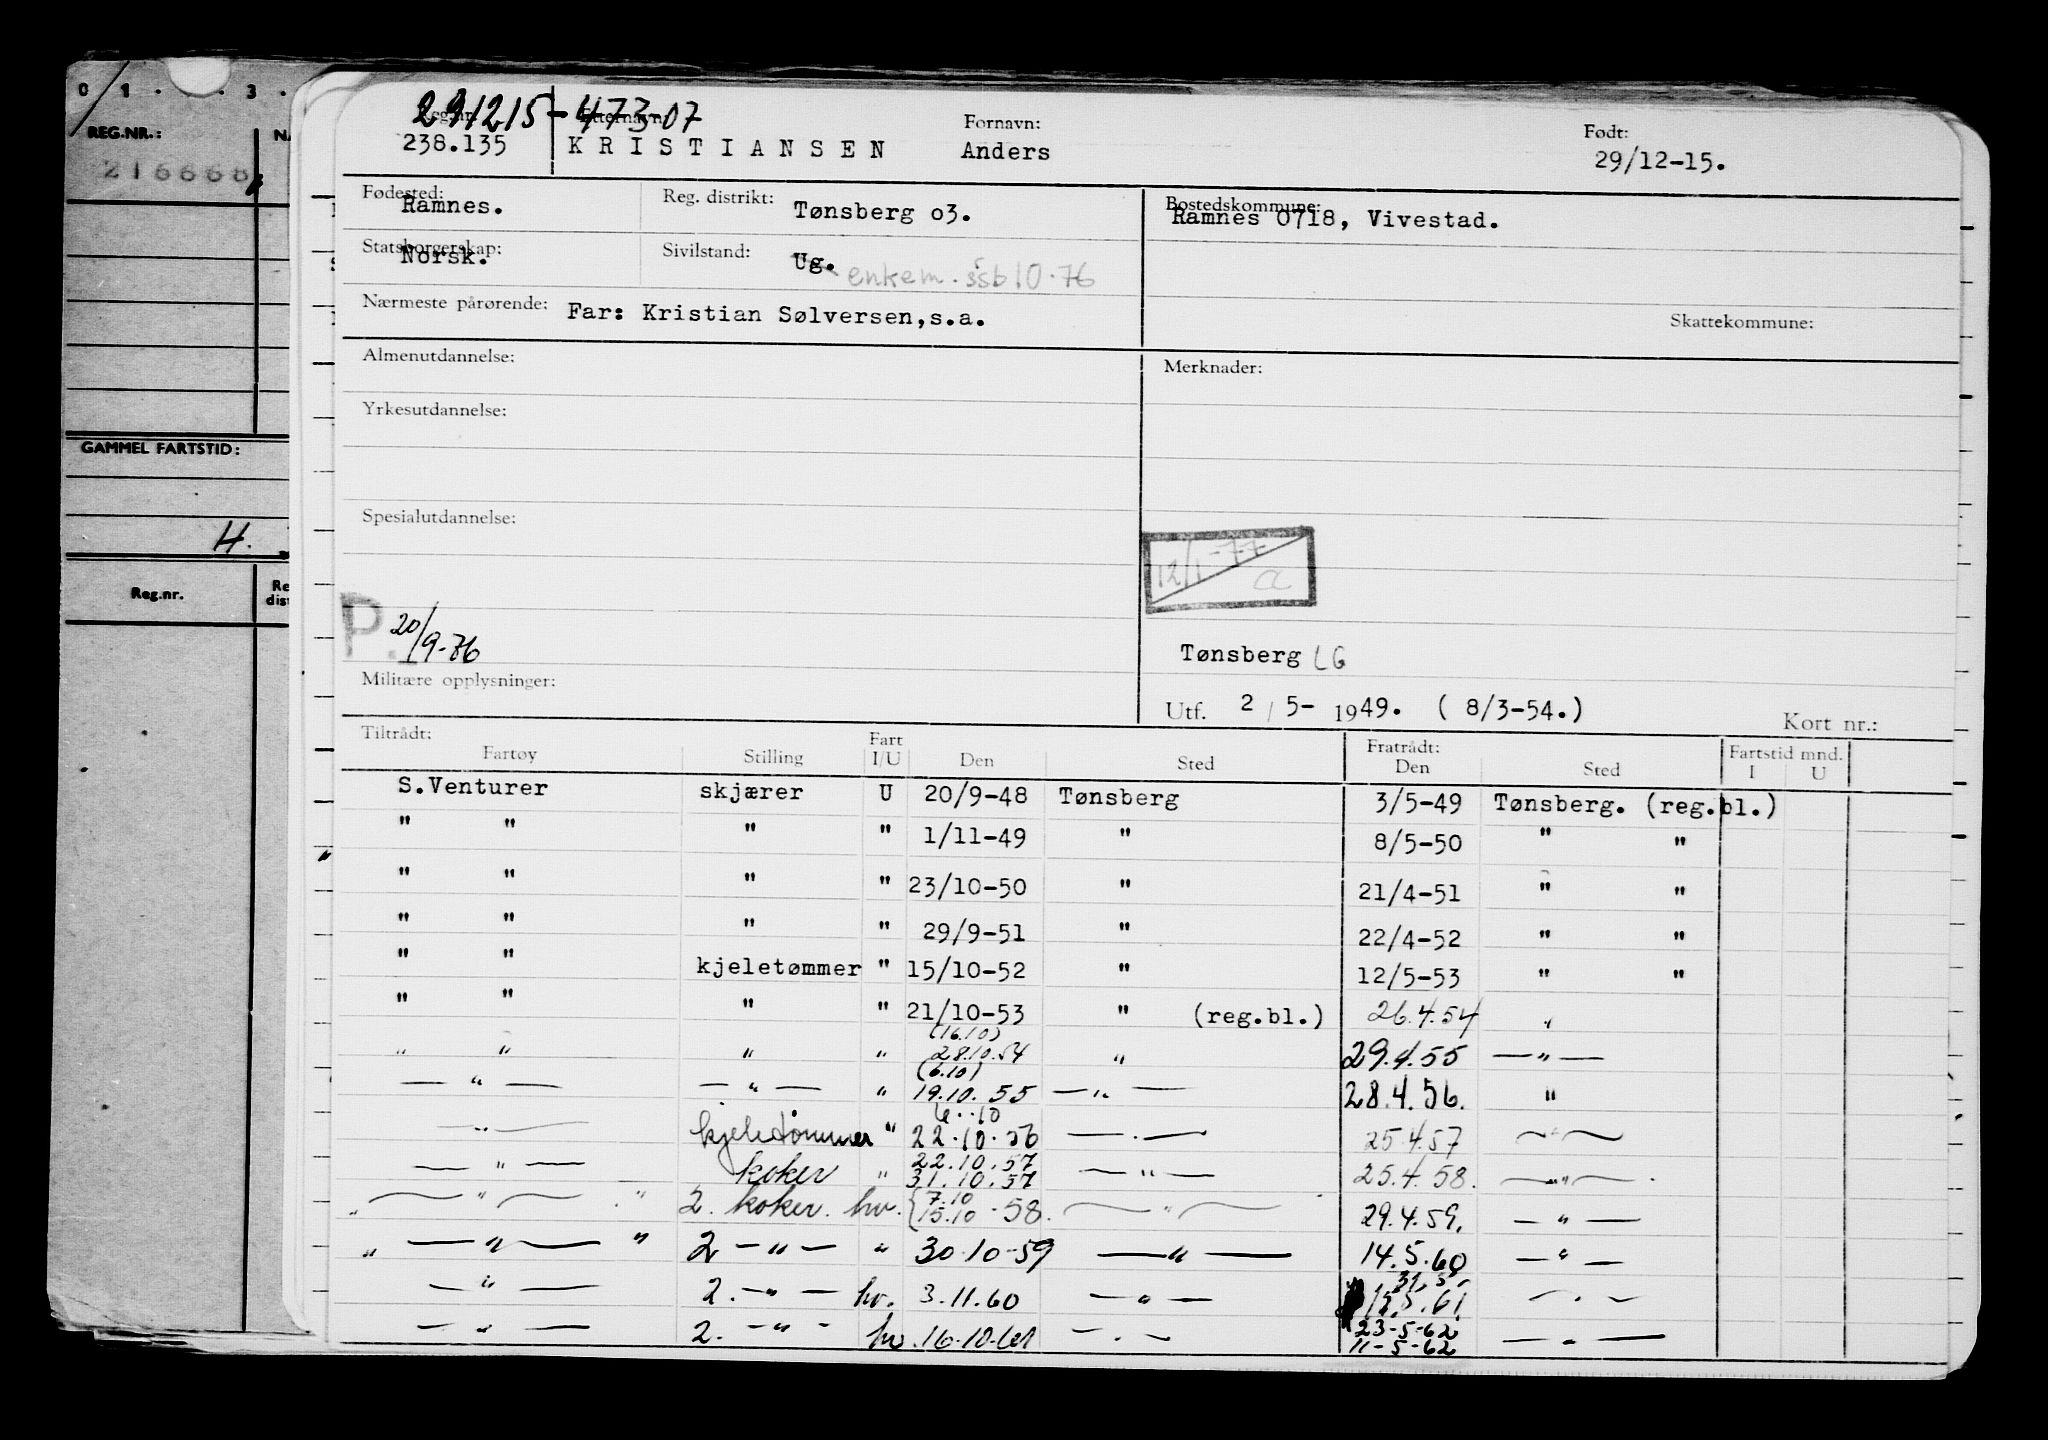 0 1 . . . 3 .
REG.NR.:
216668
GAMMEL FARTSTID:
H.
Reg.nr.
291215-473-07
Reg.nr. Etternavn: Fornavn: Født:
238.135 KRISTIANSEN Anders 29/12-15.
Fødested: Ramnes. Reg. distrikt: Tønsberg o3. Bostedskommune: Ramnes 0718, Vivestad.
Statsborgerskap: Norsk. Sivilstand: Ug. enkem. ssb 10.76
Nærmeste pårørende: Far: Kristian Sølversen,s.a. Skattekommune:
Almenutdannelse: Merknader:
Yrkesutdannelse:
Spesialutdannelse:
12/1-77 a
P. 20/9-76
Tønsberg LG
Militære opplysninger:
Utf. 2/5- 1949. ( 8/3-54.) Kort nr.:
Tiltrådt: Fart Fratrådt: Fartstid mnd.
Fartøy Stilling I/U Den Sted Den Sted I U
S.Venturer skjærer U 20/9-48 Tønsberg 3/5-49 Tønsberg. (reg.bl.)
" " " " 1/11-49 " 8/5-50 " "
" " " " 23/10-50 " 21/4-51 " "
" " " " 29/9-51 " 22/4-52 " "
" " kjeletømmer " 15/10-52 " 12/5-53 " "
" " " " 21/10-53 " (reg.bl.) 26.4.54 "
(16.10)
" " " " 28.10.54 " 29.4.55 — " —
(6.10)
— " — — " — " 19.10.55 — " — 28.4.56. "
6..10
— " — kjeletømmer " 22.10.56 — " — 25.4.57 — " —
22.10.57
— " — koker " 31.10.57 — " — 25.4.58. — " —
7.10
" — " — " 2. koker. hv. 15.10.58. — " — 29.4.59. — " —
" — " — " 2 — " — " 30.10-59 — " — 14.5.60 — " —
31.5.
— " — 2. — " — hv. 3.11.60 — " — 15.5.61 — " —
23-5-62
— " — 2. — " — hv. 16.10.61 — " — 11-5-62 — " —